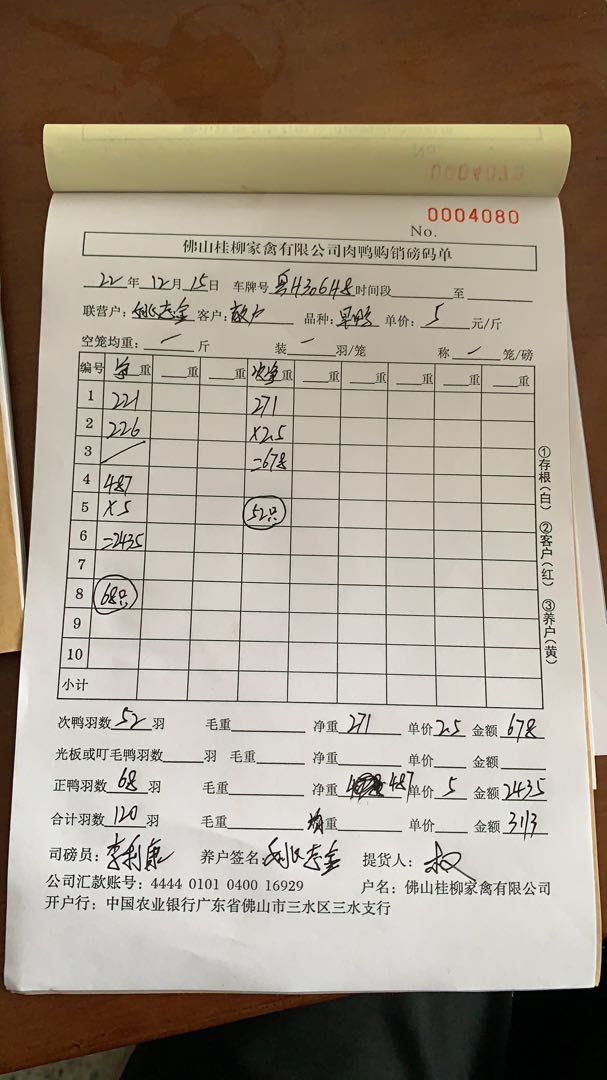 0004080
No.
佛山桂柳家禽有限公司肉鸭购销磅码单
22年12月15日 车牌号 粤H30648 时间段 至
联营户: 志金 客户: 散户 品种: 单价: 5 元/斤
空笼均重: 一 斤 装 一 羽/笼 称 一 笼/磅
编号 净重 重 重 次净重 重 重 重 重 重
1 221 271
2 226 ×2.5
3 =678
4 487
5 ×5 52只
6 =2435
7
8 68只
9
10
小计
①存根(白) ②客户(红) ③养户(黄)
次鸭羽数 52 羽 毛重 净重 271 单价 2.5 金额 678
光板或叮毛鸭羽数 羽 毛重 净重 单价 金额
正鸭羽数 68 羽 毛重 净重 487 单价 5 金额 2435
合计羽数 120 羽 毛重 均重 单价 金额 3113
司磅员: 李利康 养户签名: 志金 提货人:
公司汇款账号: 4444 0101 0400 16929 户名: 佛山桂柳家禽有限公司
开户行: 中国农业银行广东省佛山市三水区三水支行